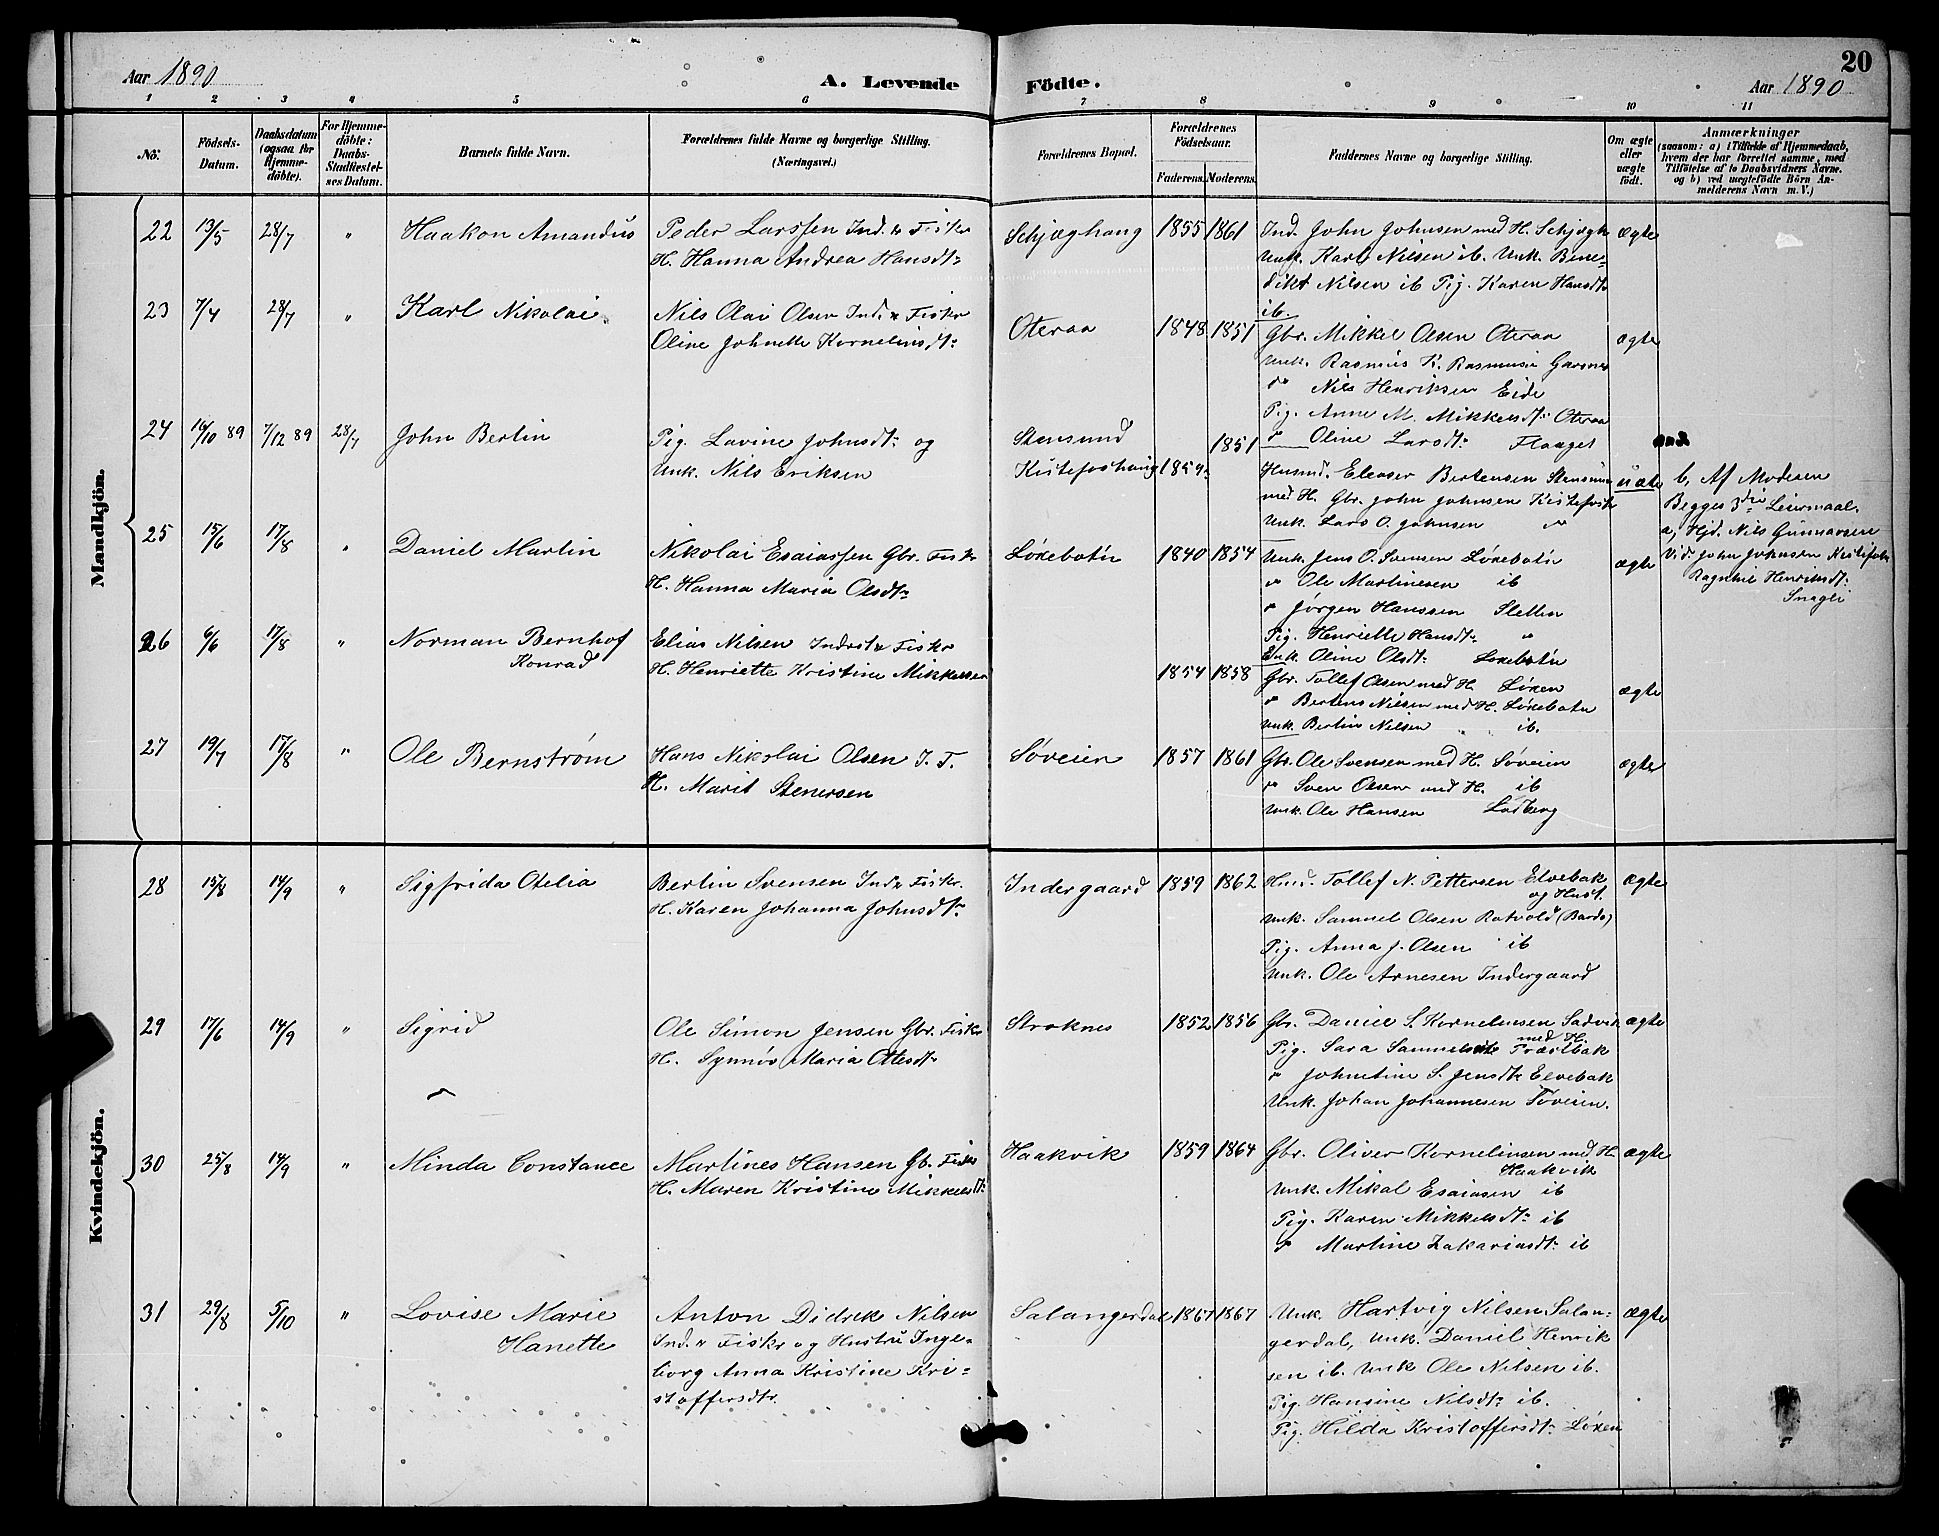 20
Aar 1890 A. Levende Födte. Aar 1890
1 2 3 4 5 6 7 8 9 10 11
No.
Födsels-
Datum.
Daabsdatum
(ogsaa for
Hjemme-
döbte).
For Hjemme-
döbte:
Daabs-
Stadfæstel-
ses Datum.
Barnets fulde Navn.
Forældrenes fulde Navne og borgerlige Stilling.
(Næringsvei.)
Forældrenes Bopæl.
Forældrenes
Födselsaar.
Faderens. Moderens.
Faddernes Navne og borgerlige Stilling.
Om ægte
eller
uægte
födt.
Anmærkninger
(saasom: a) i Tilfælde af Hjemmedaab,
hvem der har forrettet samme, med
Tilföielse af to Daabsvidners Navne.
og b) ved uægtefödte Börn An-
melderens Navn m. V.)
Mandkjön.
22 13/5 28/7 " Haakon Amandus
Peder Larssen Ind. & Fiskr
H. Hanna Andrea Hansdtr
Schjæghaug 1855 1861
Ind. John Johnsen med H. Schjægh
Unk. Karl Nilsen ib. Unk. Bene-
dikt Nilsen ib Pig. Karen Hansdtr
ib.
ægte
23 7/4 28/7 " Karl Nikolai
Nils Olai Olsen Ind. & Fiskr
Oline Johnette Kornelinsdtr
Oteraa 1848 1851
Gbr. Mikkel Olsen Oteraa
Unk. Rasmus K. Rasmusen Garsnes
do Nils Henriksen Eide
Pig. Anne M. Mikkelsdtr Oteraa
do Oline Larsdtr Flaaget
ægte
24 16/10 89 7/12 89 28/7 John Bertin
Pig. Lavine Johnsdtr og
Unk. Nils Eriksen
Stensund 1851
Kistefoshaug 1854
Husmd. Eleaser Bertensen Stensund
med H. Gbr. John Johnsen Kistefosh
Unk. Lars O. Johnsen "
uægte
b, Af Moderen
Begges 3die Leiermaal.
a, Hjd. Nils Gunnarsen
Vid. John Johnsen Kistefosh
Ragnhil Henriksdtr
Snagli
25 15/6 17/8 " Daniel Martin
Nikolai Esaiassen Gbr. Fiskr
H. Hanna Maria Olsdtr
Løxebotn 1840 1854
Unk. Jens O. Svensen Løxebotn
" Ole Martinesen ib
" Jørgen Hanssen Sletten
Pig. Henriette Hansdtr "
Enk. Oline Olsdtr Løxebotn
ægte
26 6/6 17/8 " Norman Bernhof
Konrad
Elias Nilsen Inderst & Fiskr
H. Henriette Kristine Mikkelsen
1854 1858
Gbr. Tollef Olsen med H. Løxen
" Bertens Nilsen med H. Løxebotn
Unk. Bertin Nilsen ib.
ægte
27 19/7 17/8 " Ole Bernstrøm
Hans Nikolai Olsen I. F.
H. Marit Stenersen
Søveien 1857 1861
Gbr. Ole Svensen med H. Søveien
" Sven Olsen med H. ib
Unk. Ole Hansen Lødberg
ægte
Kvindekjön.
28 15/8 14/9 " Sigfrida Otelia
Bertin Svensen Ind & Fiskr.
H. Karen Johanna Johnsdtr
Indergaard 1859 1862
Husd. Tollef N. Pettersen Elvebak
og Hust.
Unk. Samuel Olsen Ratvold (Bardo)
Pig. Anna J. Olsen ib
Unk. Ole Arnesen Indergaard
ægte
29 17/6 14/9 " Sigrid
Ole Simon Jensen Gbr. Fiskr
H. Synnöv Maria Ottesdtr
Stroknes 1852 1856
Gbr. Daniel S. Kornelinsen Sadvik
med H.
Pig. Sara Samuelsdtr Træslbak
" Johnetine S. Jensdtr Elvebak
Unk. Johan Johannesen Søveien.
ægte
30 25/8 14/9 " Minda Constance
Martines Hansen Gb. Fiskr
H. Maren Kristine Mikkelsdtr
Haakvik 1859 1864
Gbr. Oliver Kornelinsen med H.
Haakvik
Unk. Mikal Esaiasen ib
Pig. Karen Mikkelsdtr ib
" Martine Zakariasdtr ib
ægte
31 29/8 5/10 " Lovise Marie
Hanette
Anton Didrek Nilsen
Ind. & Fiskr og Hustru Inge-
borg Anna Kristine Kri-
stoffersdtr
Salangerdal 1867 1867
Unk. Hartvig Nilsen Salan-
gerdal, Unk. Daniel Henrik
sen ib. Unk Ole Nilsen ib.
Pig. Hansine Nilsdtr ib.
Pig. Hilda Kristoffersdtr Løxen
ægte